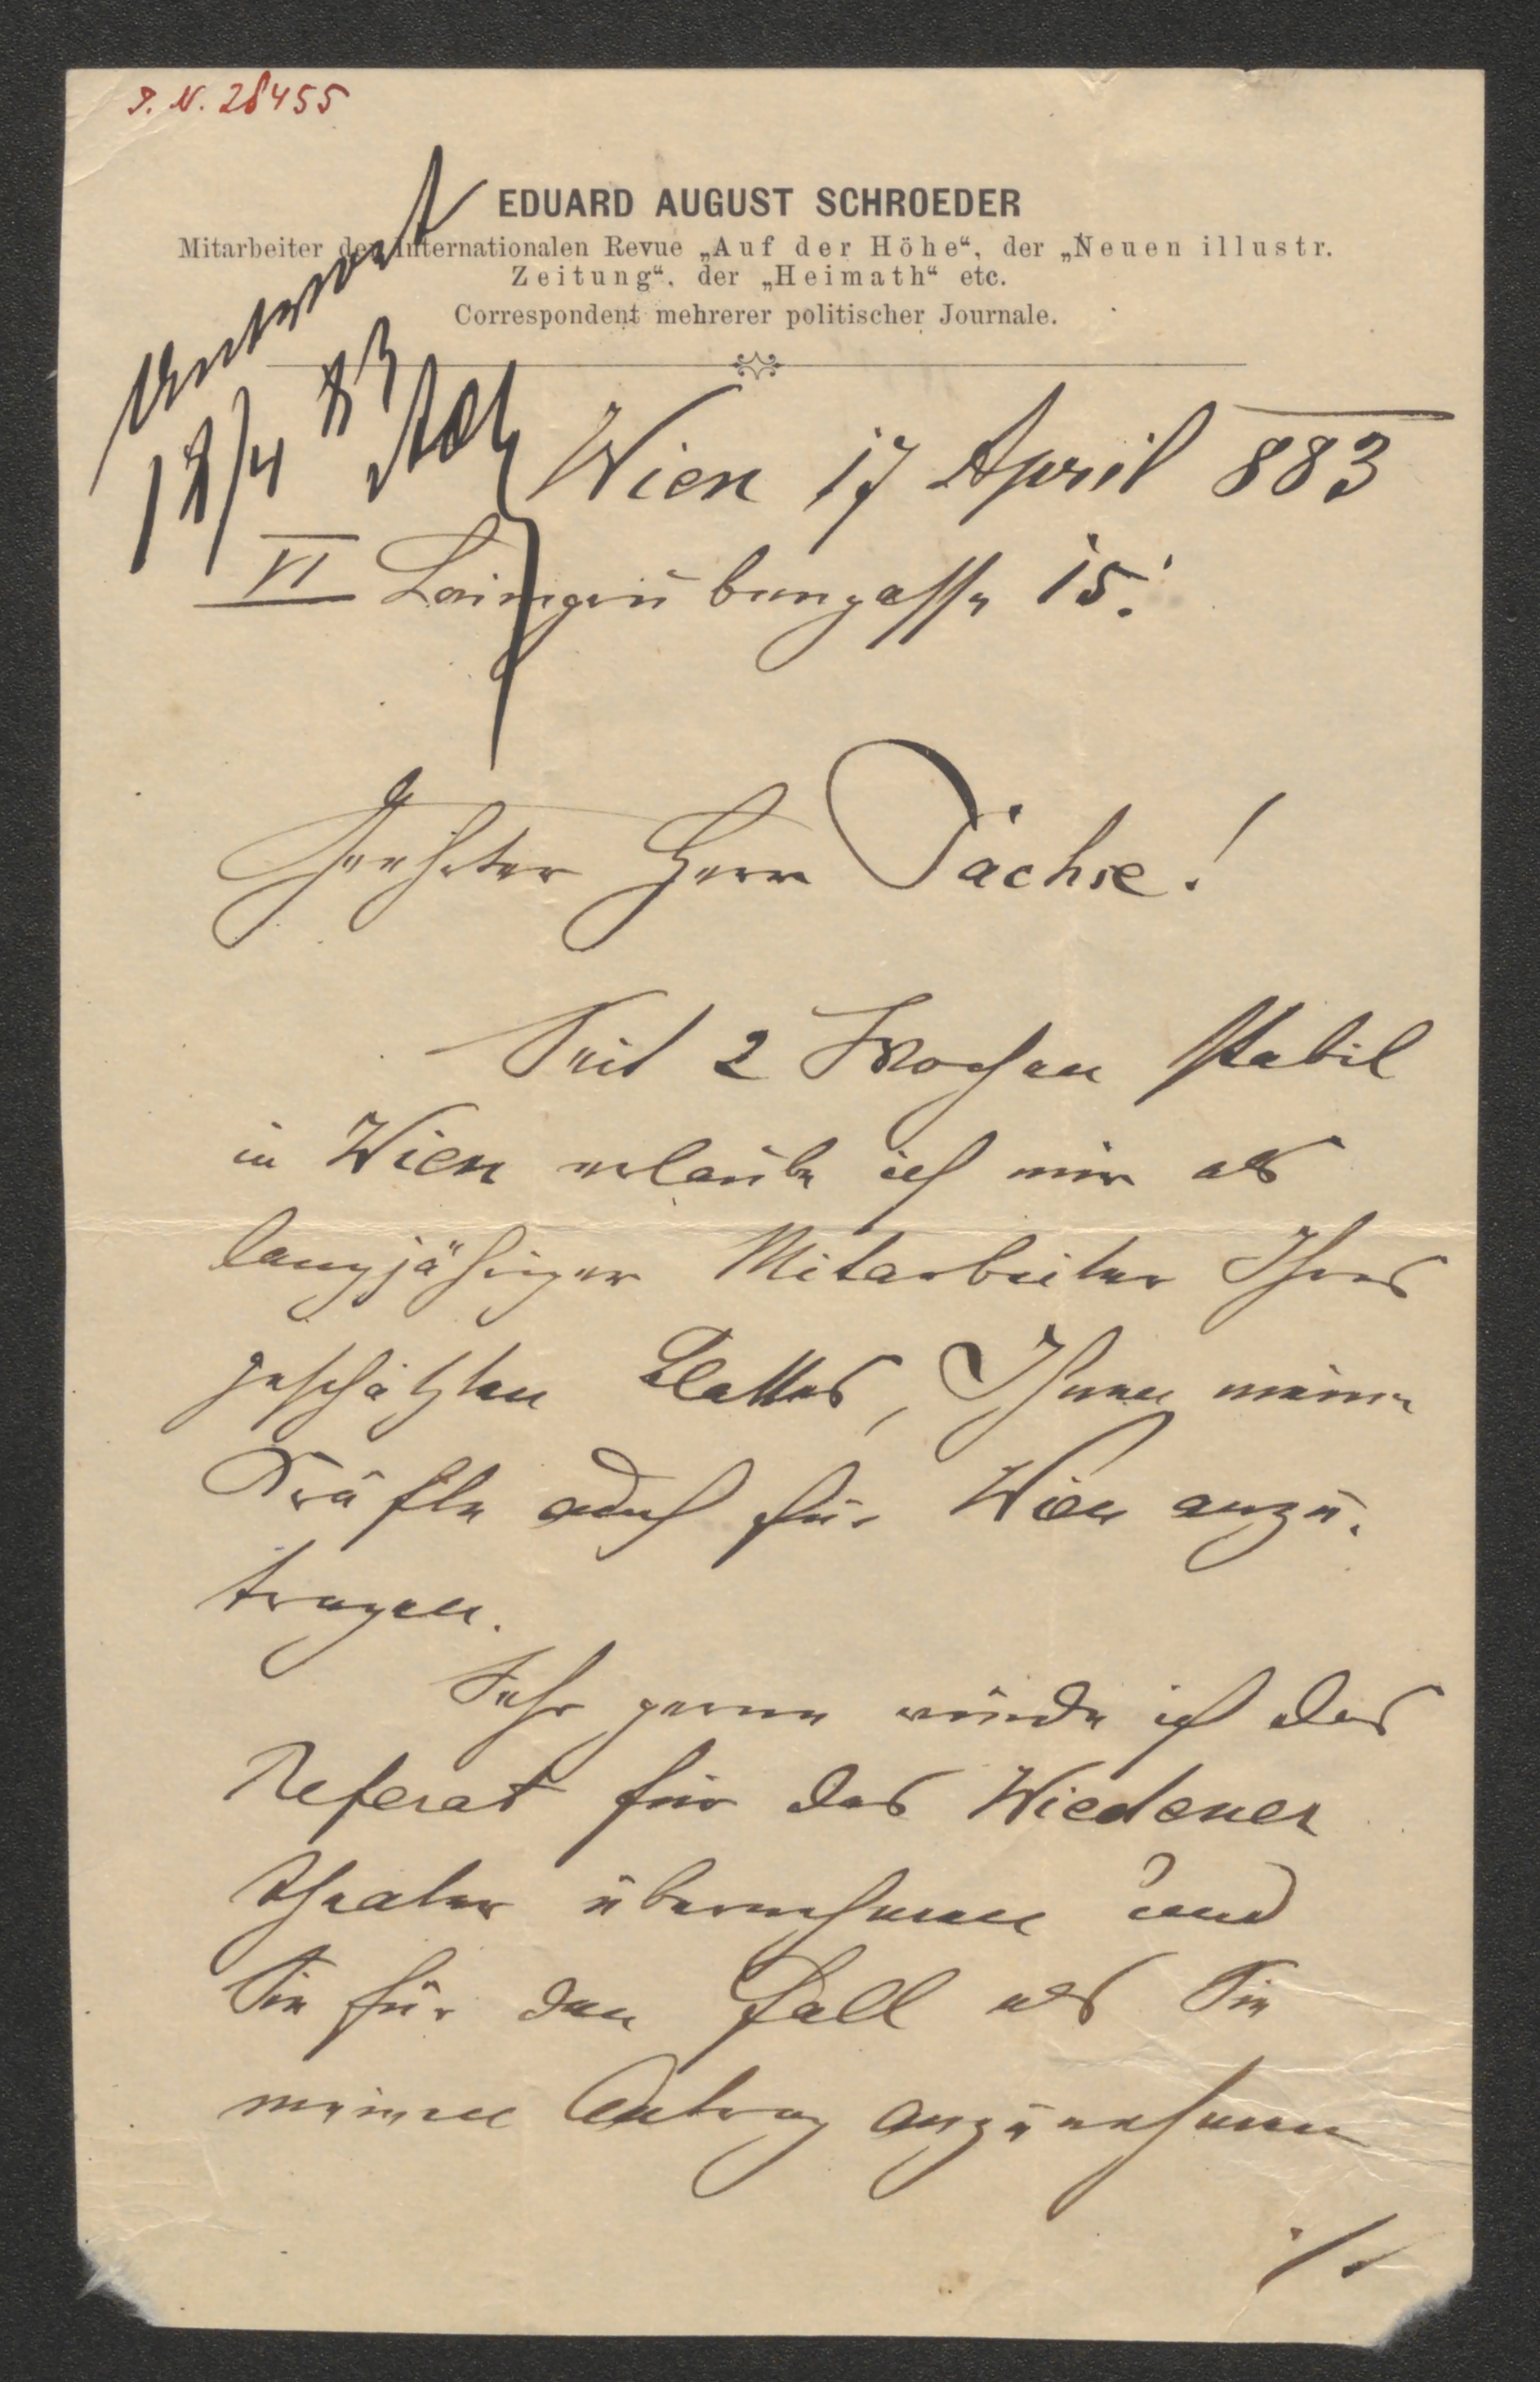 I. N. 28455
EDUARD AUGUST SCHROEDER
Mitarbeiter der Internationalen Revue „Auf der Höhe“, der „Neuen illustr.
Zeitung“, der „Heimath“ etc.
Correspondent mehrerer politischer Journale.
18/4 83
Wien 17 April 883
VI Laimgrubengasse 15.
Geehrter Herr Sachse!
Seit 2 Wochen stabil
in Wien erlaube ich mir als
langjähriger Mitarbeiter Ihres
geschätzten Blattes, Ihnen meine
Kräfte auch für Wien anzu-
tragen.
Sehr gerne würde ich das
Referat für das Wiedener
Theater übernehmen und
Sie für den Fall als Sie
meinen Antrag anzunehmen
./.